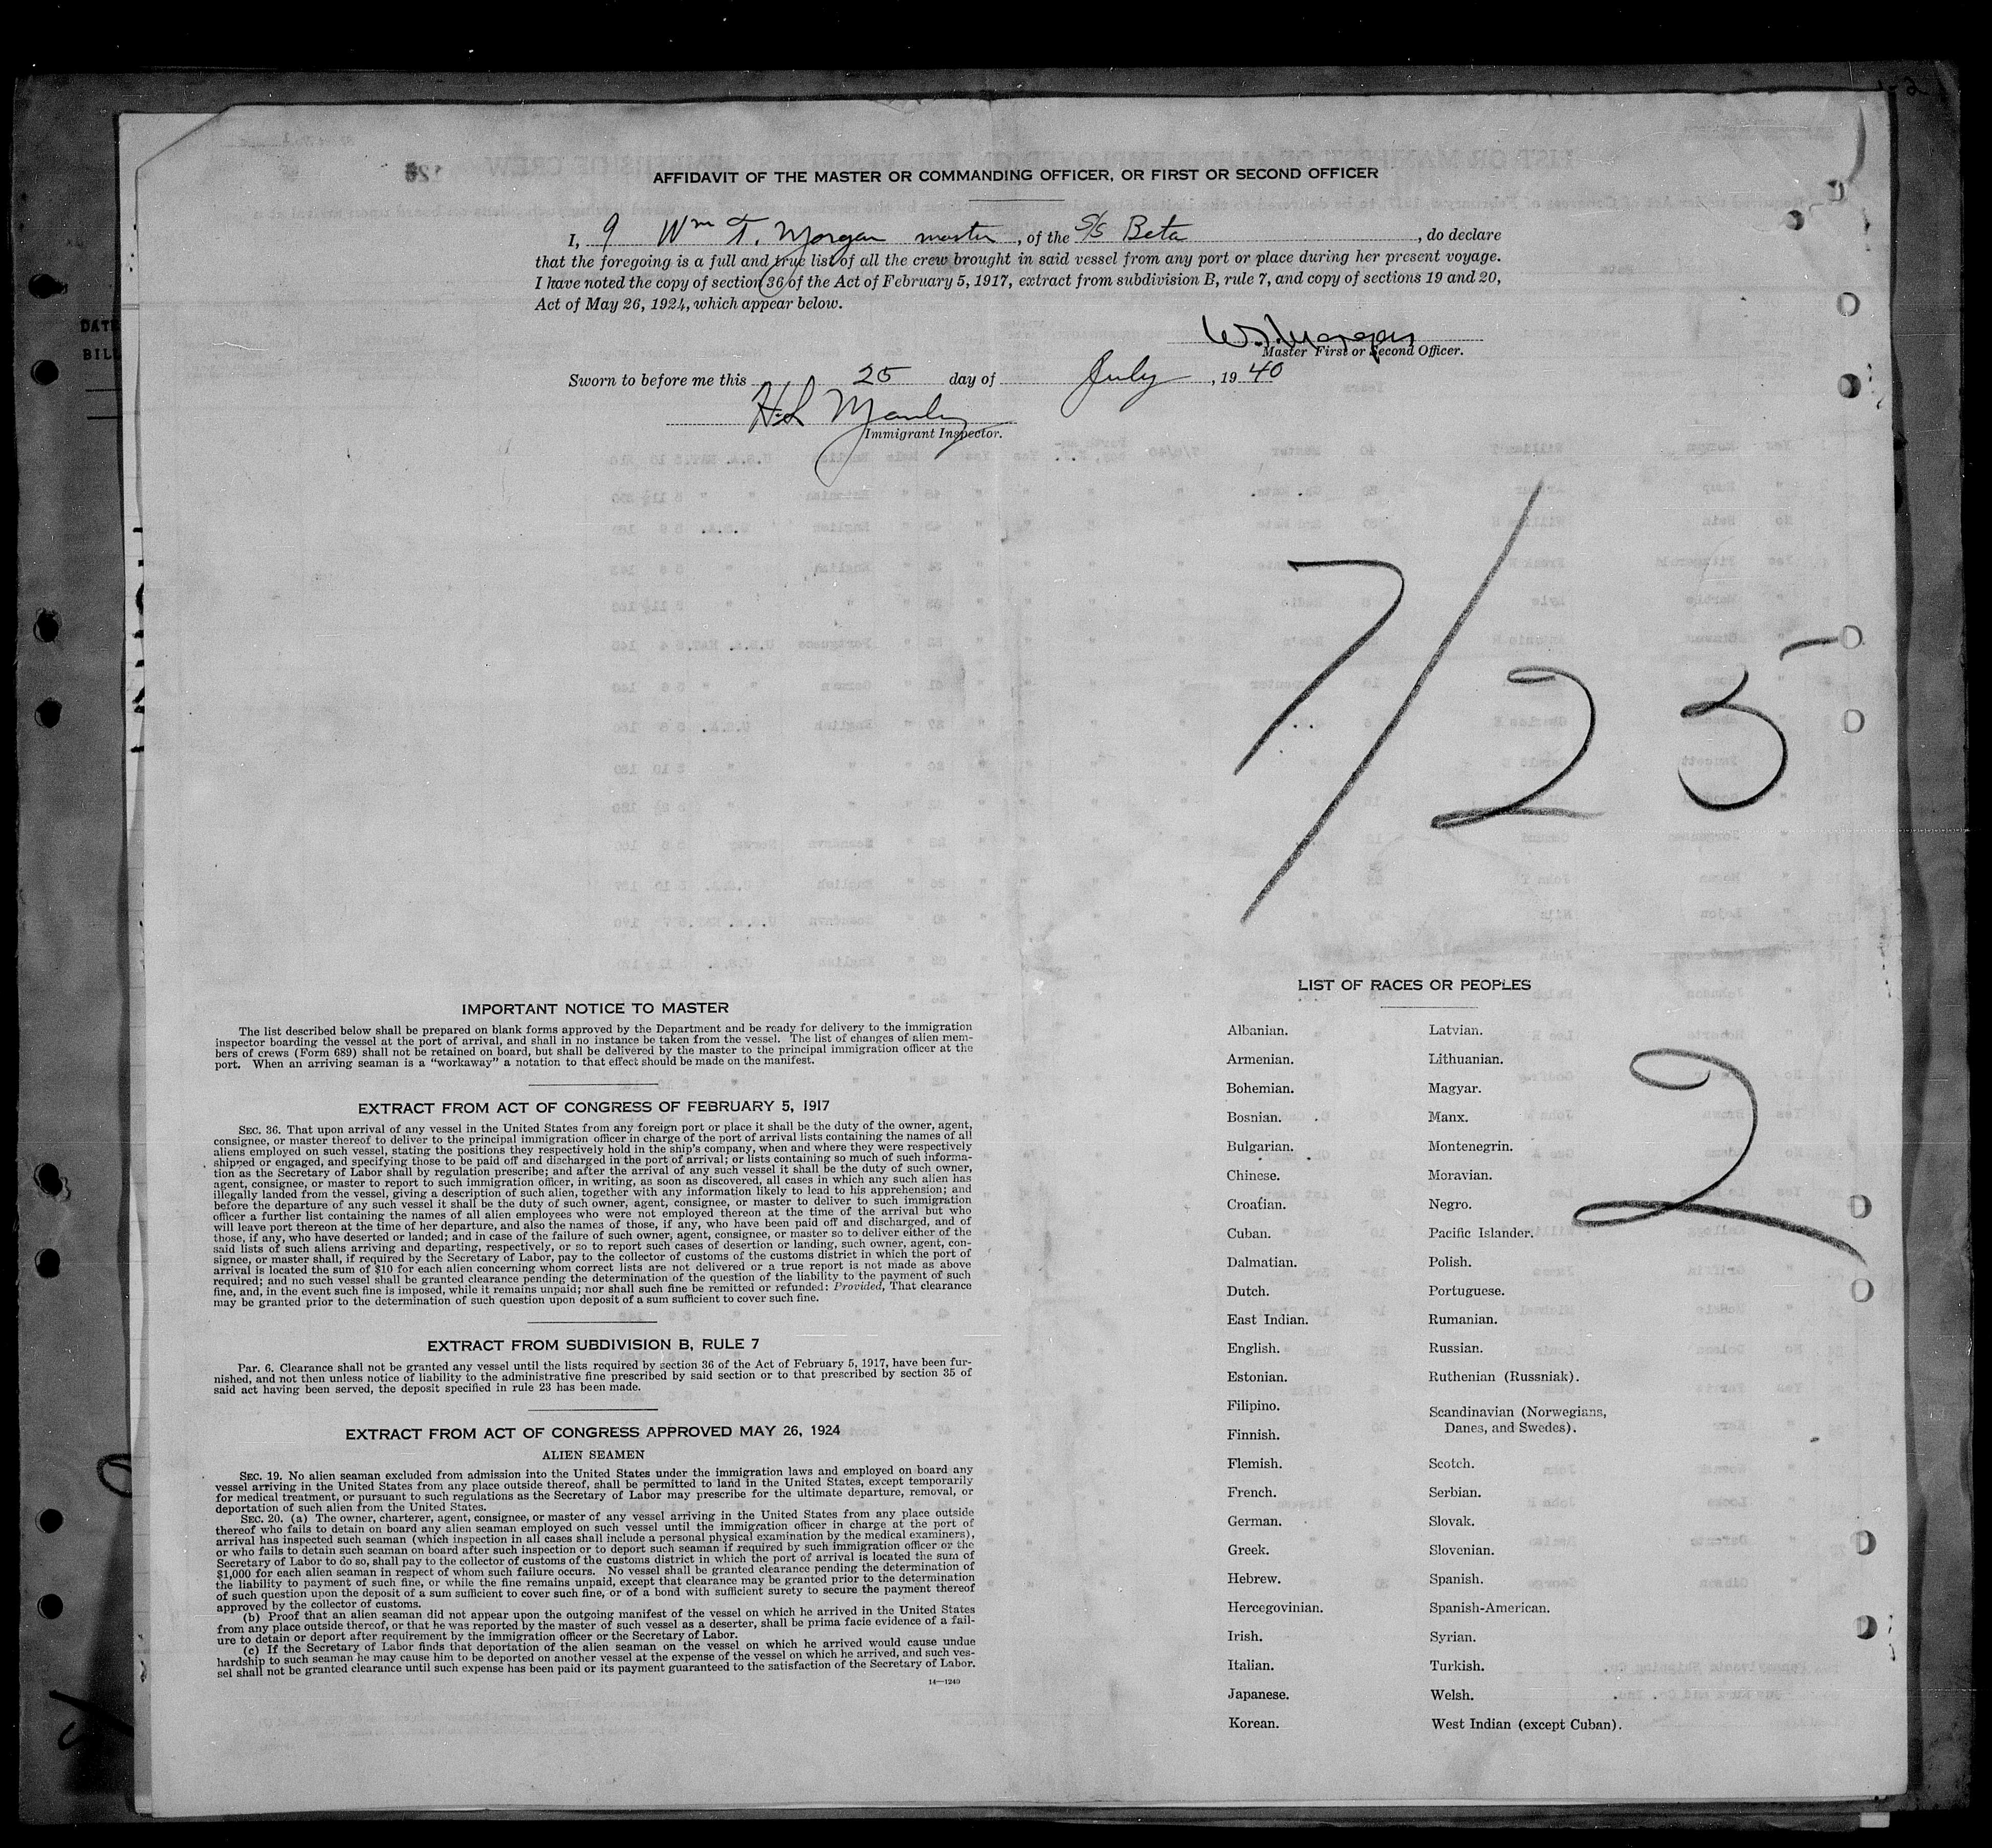 AFFIDAVIT OF THE MASTER OR COMMANDING OFFICER, OR FIRST OR SECOND OFFICER
I, I Wm T. Morgan master, of the S/S Beta, do declare
that the foregoing is a full and true list of all the crew brought in said vessel from any port or place during her present voyage.
I have noted the copy of section 36 of the Act of February 5, 1917, extract from subdivision B, rule 7, and copy of sections 19 and 20,
Act of May 26, 1924, which appear below.
W.T. Morgan
Master First or Second Officer.
Sworn to before me this 25 day of July, 1940
Immigrant Inspector.
7/25
IMPORTANT NOTICE TO MASTER
The list described below shall be prepared on blank forms approved by the Department and be ready for delivery to the immigration
inspector boarding the vessel at the port of arrival, and shall in no instance be taken from the vessel. The list of changes of alien mem-
bers of crews (Form 689) shall not be retained on board, but shall be delivered by the master to the principal immigration officer at the
port. When an arriving seaman is a "workaway" a notation to that effect should be made on the manifest.
EXTRACT FROM ACT OF CONGRESS OF FEBRUARY 5, 1917
SEC. 36. That upon arrival of any vessel in the United States from any foreign port or place it shall be the duty of the owner, agent,
consignee, or master thereof to deliver to the principal immigration officer in charge of the port of arrival lists containing the names of all
aliens employed on such vessel, stating the positions they respectively hold in the ship's company, when and where they were respectively
shipped or engaged, and specifying those to be paid off and discharged in the port of arrival; or lists containing so much of such informa-
tion as the Secretary of Labor shall by regulation prescribe; and after the arrival of any such vessel it shall be the duty of such owner,
agent, consignee, or master to report to such immigration officer, in writing, as soon as discovered, all cases in which any such alien has
illegally landed from the vessel, giving a description of such alien, together with any information likely to lead to his apprehension; and
before the departure of any such vessel it shall be the duty of such owner, agent, consignee, or master to deliver to such immigration
officer a further list containing the names of all alien employees who were not employed thereon at the time of the arrival but who
will leave port thereon at the time of her departure, and also the names of those, if any, who have been paid off and discharged, and of
those, if any, who have deserted or landed; and in case of the failure of such owner, agent, consignee, or master so to deliver either of the
said lists of such aliens arriving and departing, respectively, or so to report such cases of desertion or landing, such owner, agent, con-
signee, or master shall, if required by the Secretary of Labor, pay to the collector of customs of the customs district in which the port of
arrival is located the sum of $10 for each alien concerning whom correct lists are not delivered or a true report is not made as above
required; and no such vessel shall be granted clearance pending the determination of the question of the liability to the payment of such
fine, and, in the event such fine is imposed, while it remains unpaid; nor shall such fine be remitted or refunded: Provided, That clearance
may be granted prior to the determination of such question upon deposit of a sum sufficient to cover such fine.
EXTRACT FROM SUBDIVISION B, RULE 7
Par. 6. Clearance shall not be granted any vessel until the lists required by section 36 of the Act of February 5, 1917, have been fur-
nished, and not then unless notice of liability to the administrative fine prescribed by said section or to that prescribed by section 35 of
said act having been served, the deposit specified in rule 23 has been made.
EXTRACT FROM ACT OF CONGRESS APPROVED MAY 26, 1924
ALIEN SEAMEN
SEC. 19. No alien seaman excluded from admission into the United States under the immigration laws and employed on board any
vessel arriving in the United States from any place outside thereof, shall be permitted to land in the United States, except temporarily
for medical treatment, or pursuant to such regulations as the Secretary of Labor may prescribe for the ultimate departure, removal, or
deportation of such alien from the United States.
SEC. 20. (a) The owner, charterer, agent, consignee, or master of any vessel arriving in the United States from any place outside
thereof who fails to detain on board any alien seaman employed on such vessel until the immigration officer in charge at the port of
arrival has inspected such seaman (which inspection in all cases shall include a personal physical examination by the medical examiners),
or who fails to detain such seaman on board after such inspection or to deport such seaman if required by such immigration officer or the
Secretary of Labor to do so, shall pay to the collector of customs of the customs district in which the port of arrival is located the sum of
$1,000 for each alien seaman in respect of whom such failure occurs. No vessel shall be granted clearance pending the determination of
the liability to payment of such fine, or while the fine remains unpaid, except that clearance may be granted prior to the determination
of such question upon the deposit of a sum sufficient to cover such fine, or of a bond with sufficient surety to secure the payment thereof
approved by the collector of customs.
(b) Proof that an alien seaman did not appear upon the outgoing manifest of the vessel on which he arrived in the United States
from any place outside thereof, or that he was reported by the master of such vessel as a deserter, shall be prima facie evidence of a fail-
ure to detain or deport after requirement by the immigration officer or the Secretary of Labor.
(c) If the Secretary of Labor finds that deportation of the alien seaman on the vessel on which he arrived would cause undue
hardship to such seaman he may cause him to be deported on another vessel at the expense of the vessel on which he arrived, and such ves-
sel shall not be granted clearance until such expense has been paid or its payment guaranteed to the satisfaction of the Secretary of Labor.
14—1240
LIST OF RACES OR PEOPLES
Albanian.
Armenian.
Bohemian.
Bosnian.
Bulgarian.
Chinese.
Croatian.
Cuban.
Dalmatian.
Dutch.
East Indian.
English.
Estonian.
Filipino.
Finnish.
Flemish.
French.
German.
Greek.
Hebrew.
Hercegovinian.
Irish.
Italian.
Japanese.
Korean.
Latvian.
Lithuanian.
Magyar.
Manx.
Montenegrin.
Moravian.
Negro.
Pacific Islander.
Polish.
Portuguese.
Rumanian.
Russian.
Ruthenian (Russniak).
Scandinavian (Norwegians,
Danes, and Swedes).
Scotch.
Serbian.
Slovak.
Slovenian.
Spanish.
Spanish-American.
Syrian.
Turkish.
Welsh.
West Indian (except Cuban).
2